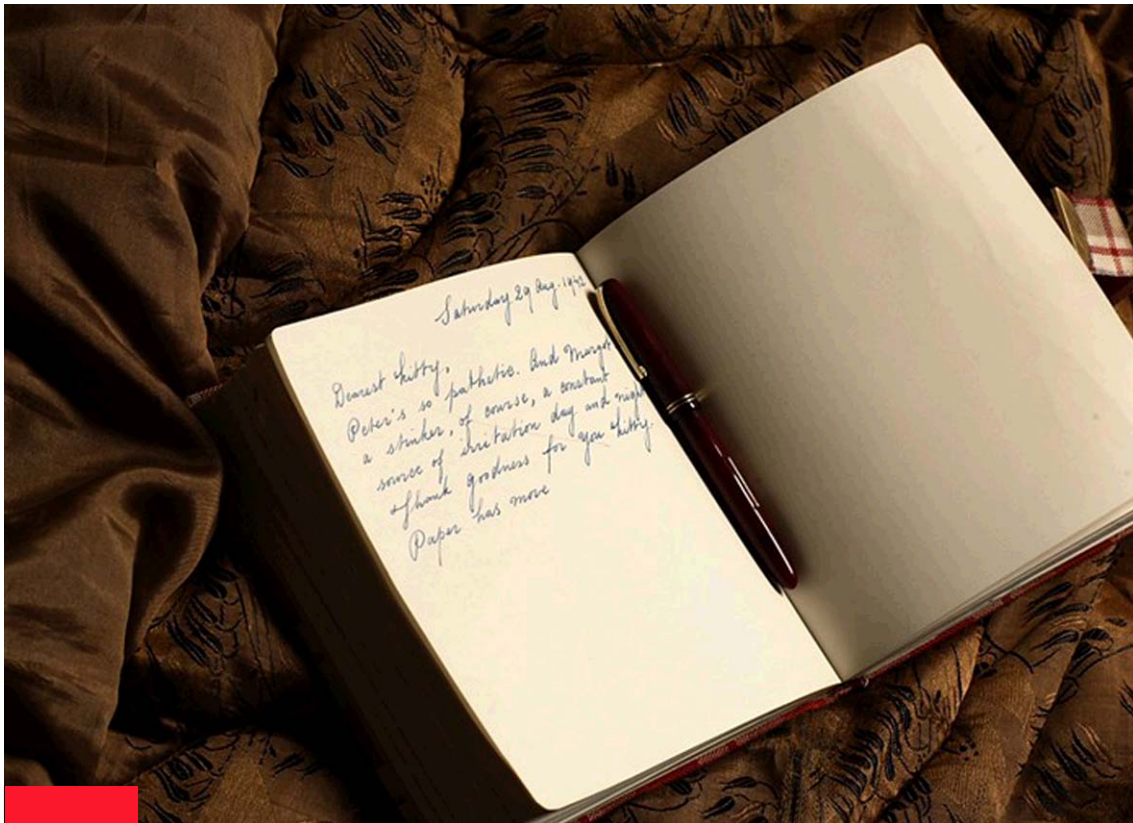 Saturday 29 Aug. 1942
Dearest kitty,
Peter's so pathetic. And Margot
a stinker, of course, a constant
source of irritation day and night
Thank goodness for you kitty.
Paper has more